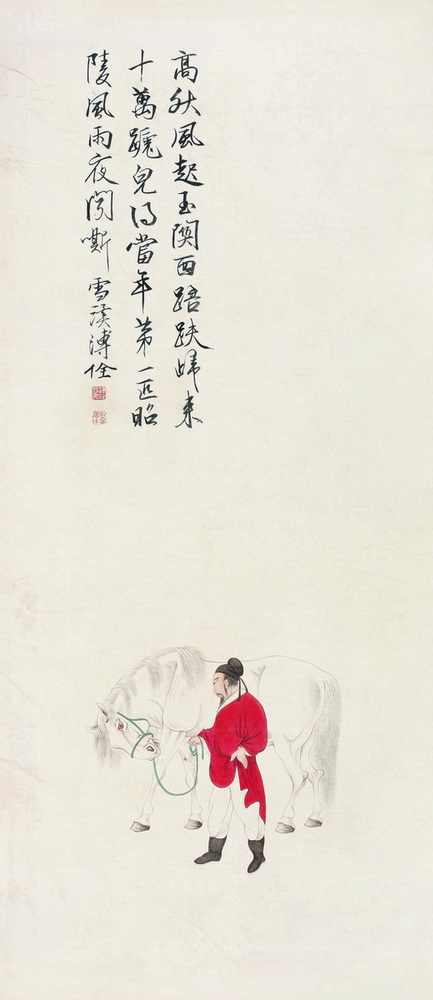 高秋風起玉関西踣歸来
十萬蹏皃得當年第一匹昭
陵風雨夜聞嘶 雪溪溥佺